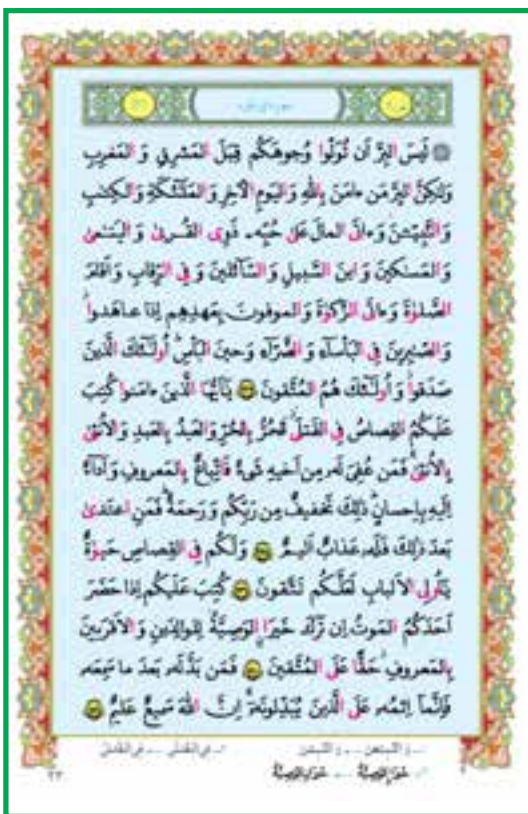 لَيسَ البِرَّ أَن تُوَلّوا وُجوهَكُم قِبَلَ المَشرِقِ وَ المَغرِبِ
وَلٰكِنَّ البِرَّ مَن ءامَنَ بِاللّٰهِ وَ اليَومِ الآخِرِ وَ المَلٰئِكَةِ وَ الكِتٰبِ
وَ النَّبِيّٖنَ وَ ءاتَى المالَ عَلىٰ حُبِّهٖ ذَوِى القُربىٰ وَ اليَتٰمىٰ
وَ المَسٰكينَ وَ ابنَ السَّبيلِ وَ السّائِلينَ وَ فِى الرِّقابِ وَ اَقامَ
الصَّلوٰةَ وَ ءاتَى الزَّكوٰةَ وَ الموفونَ بِعَهدِهِم اِذا عاهَدوا
وَ الصّٰبِرينَ فِى البَأساءِ وَ الضَّرّاءِ وَ حينَ البَأسِ اُولٰئِكَ الَّذينَ
صَدَقوا وَ اُولٰئِكَ هُمُ المُتَّقونَ يٰاَيُّهَا الَّذينَ ءامَنوا كُتِبَ
عَلَيكُمُ القِصاصُ فِى القَتلَى الحُرُّ بِالحُرِّ وَ العَبدُ بِالعَبدِ وَ الاُنثىٰ
بِالاُنثىٰ فَمَن عُفِىَ لَهٗ مِن اَخيهِ شَىءٌ فَاتِّباعٌ بِالمَعروفِ وَ اَداءٌ
اِلَيهِ بِاِحسانٍ ذٰلِكَ تَخفيفٌ مِن رَبِّكُم وَ رَحمَةٌ فَمَنِ اعتَدىٰ
بَعدَ ذٰلِكَ فَلَهٗ عَذابٌ اَليمٌ وَ لَكُم فِى القِصاصِ حَيوٰةٌ
يٰاُولِى الاَلبابِ لَعَلَّكُم تَتَّقونَ كُتِبَ عَلَيكُم اِذا حَضَرَ
اَحَدَكُمُ المَوتُ اِن تَرَكَ خَيرًا الوَصِيَّةُ لِلوالِدَينِ وَ الاَقرَبينَ
بِالمَعروفِ حَقًّا عَلَى المُتَّقينَ فَمَن بَدَّلَهٗ بَعدَ ما سَمِعَهٗ
فَاِنَّما اِثمُهٗ عَلَى الَّذينَ يُبَدِّلونَهٗ اِنَّ اللّٰهَ سَميعٌ عَليمٌ